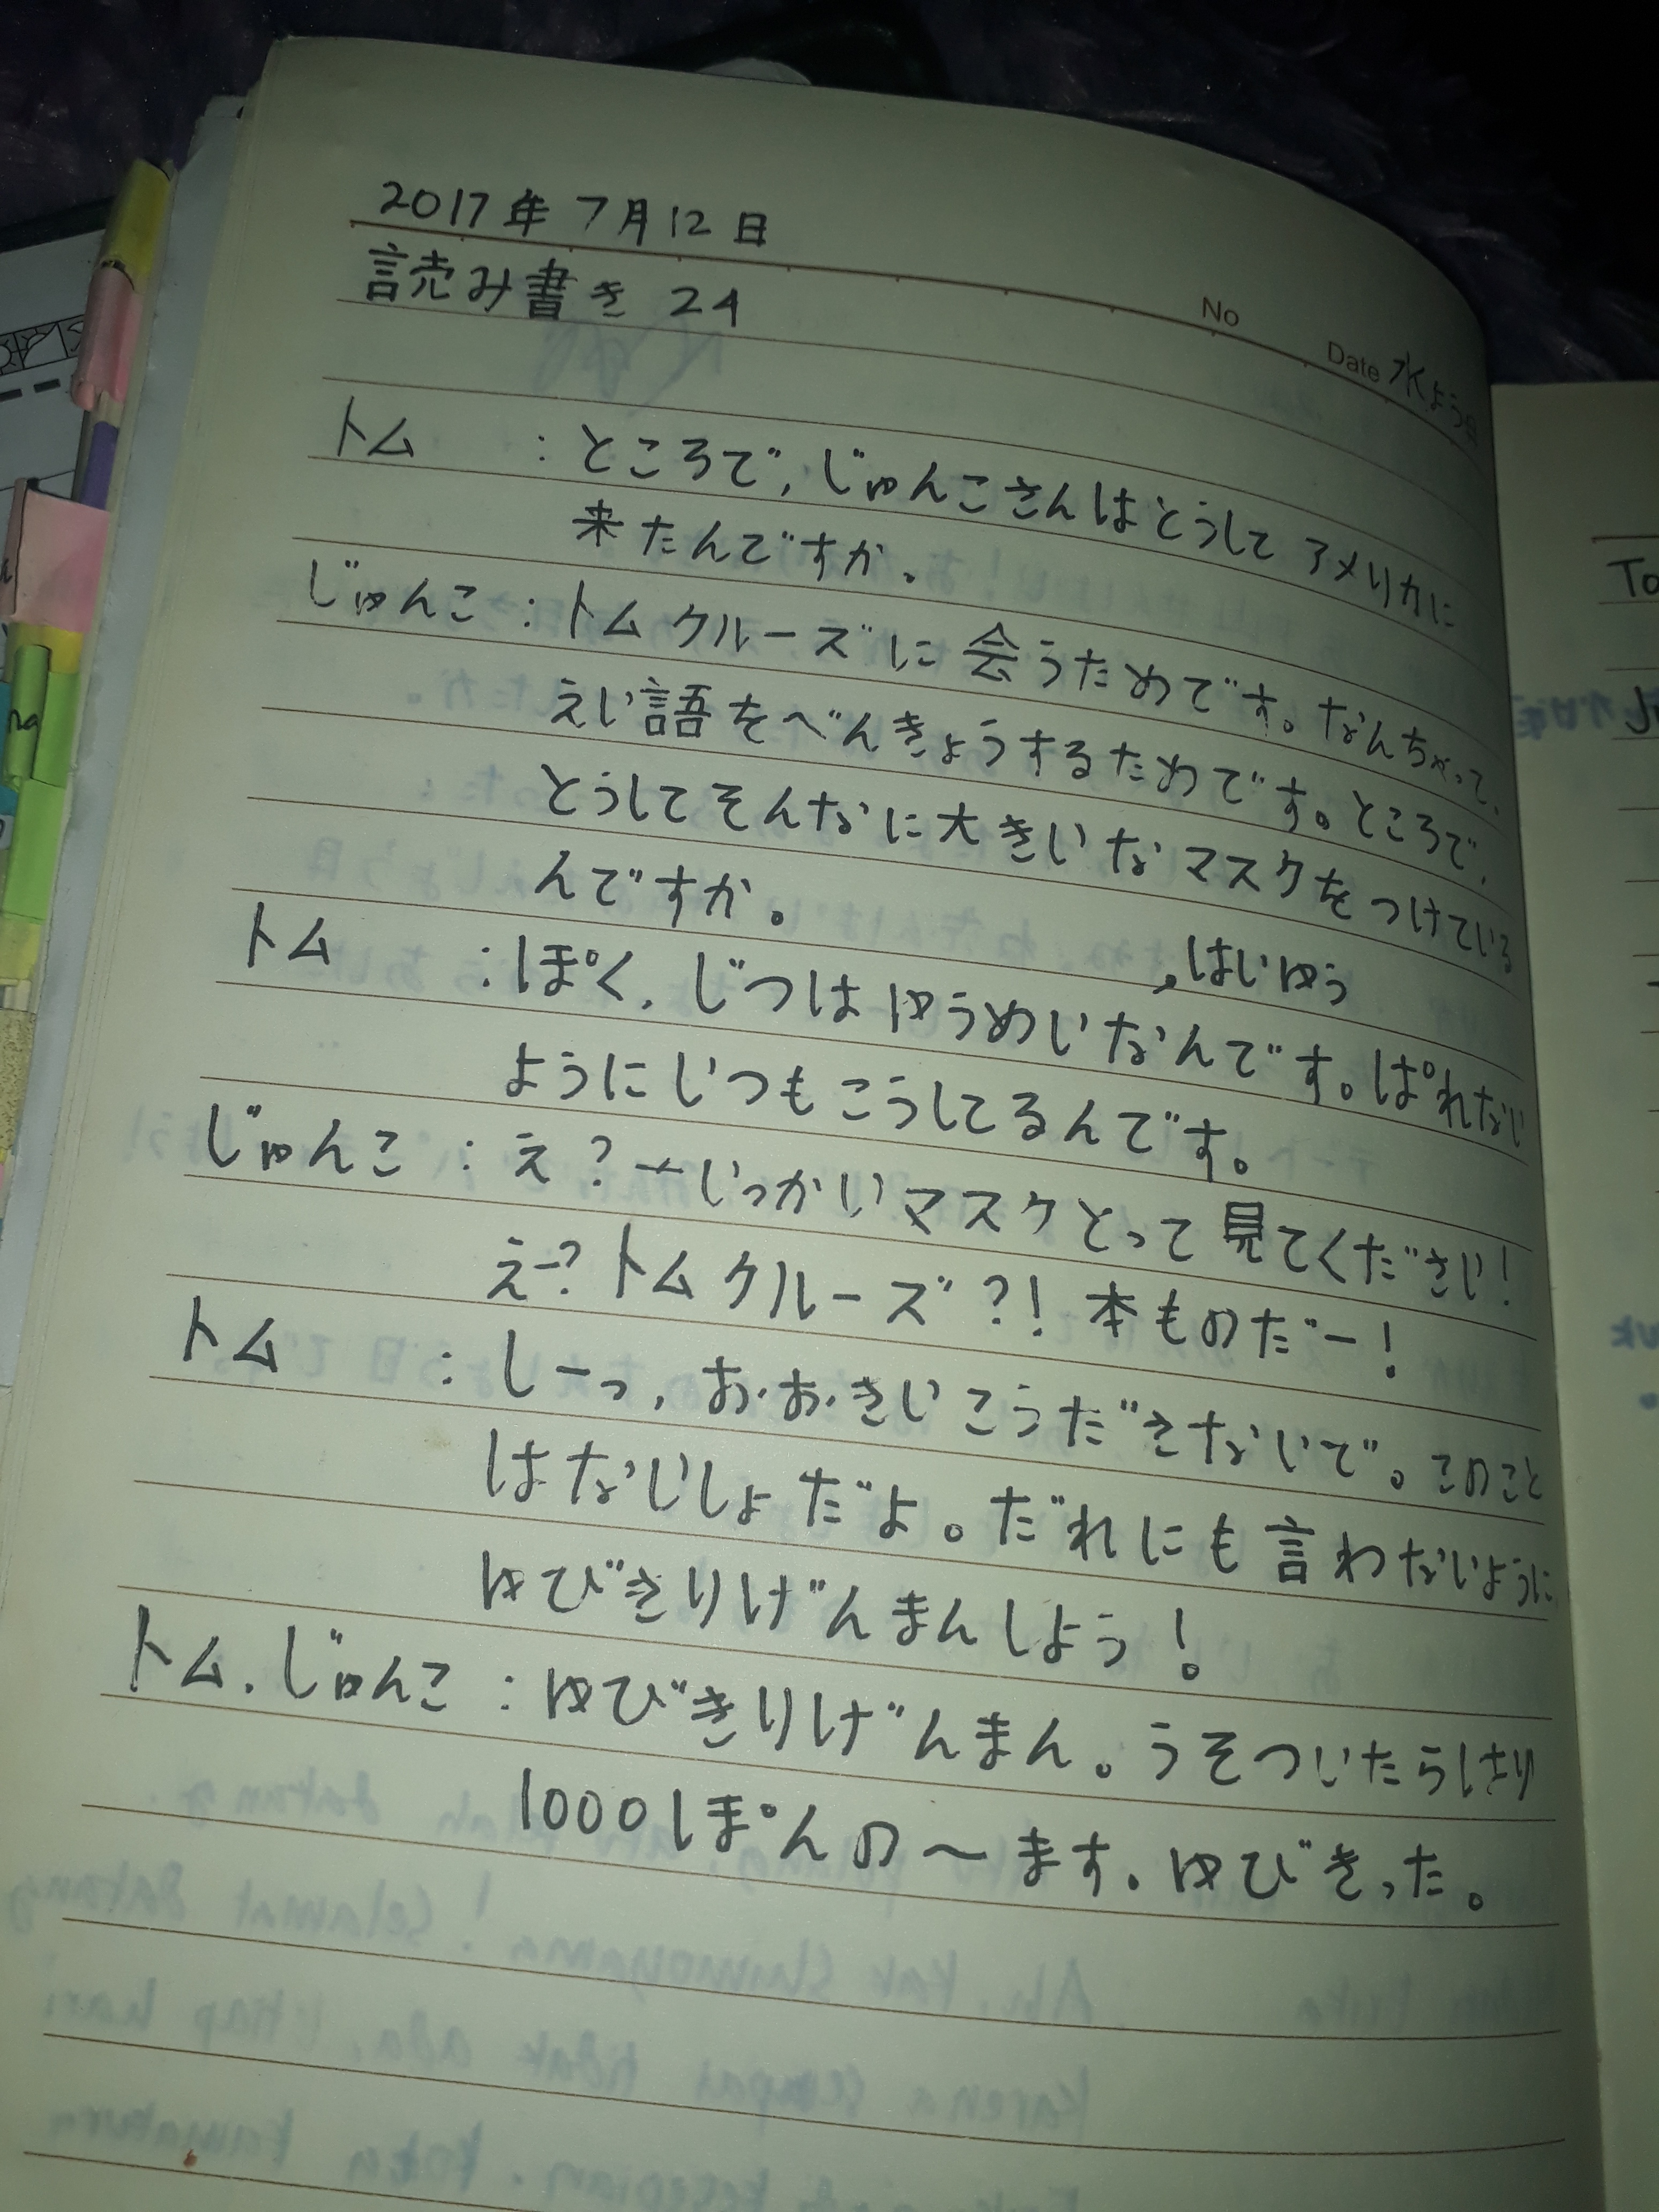 2017年7月12日
読み書き 24
No
Date 水よう日
トム : ところで、じゅんこさんはとうしてアメリカに
来たんですか。
じゅんこ : トムクルーズに会うためです。なんちゃって、
えい語をべんきょうするためです。ところで、
とうしてそんなに大きいなマスクをつけている
んですか。
、はいゆう
トム : ぽく、じつはゆうめいなんです。ぱれない
ようにいつもこうしてるんです。
じゅんこ : え?一いっかいマスクとって見てください!
えー?トムクルーズ?!本ものだー!
トム : しーっ、おおきいこうださないで。このこと
はないしょだよ。だれにも言わないように
ゆびきりげんまんしよう!
トム、じゅんこ : ゆびきりげんまん。うそついたらはり
1000ぽんの〜ます。ゆびきった。
To